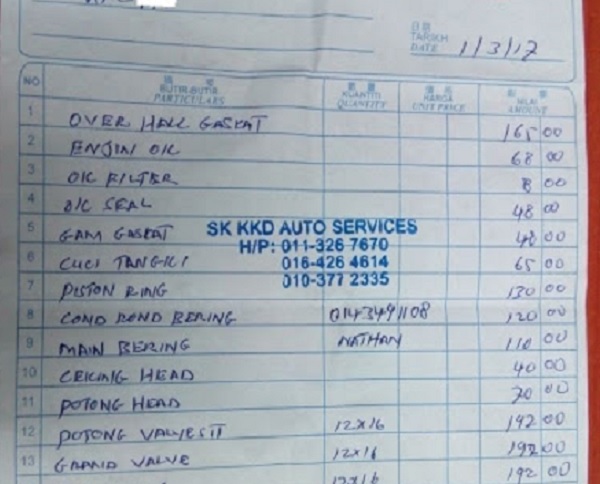 日期
TARIKH
DATE 1/3/17
NO BUTIR-BUTIR PARTICULARS KUANTITI QUANTITY HARGA UNIT PRICE NILAI AMOUNT
1 OVER HALL GASKAT 165 00
2 ENJIN OIL 68 00
3 OIL FILTER 8 00
4 OIL SEAL 48 00
5 GAM GASKAT 48 00
SK KKD AUTO SERVICES
H/P: 011-326 7670
6 CUCI TANGKI 65 00
016-426 4614
7 PISTON RING 130 00
010-377 2335
8 COND ROND BERING 0143491108 120 00
9 MAIN BERING NATHAN 110 00
10 CEKING HEAD 40 00
11 POTONG HEAD 70 00
12 POTONG VALVE SIT 12X16 142 00
13 GRAND VALVE 12X16 192 00
12X16 192 00